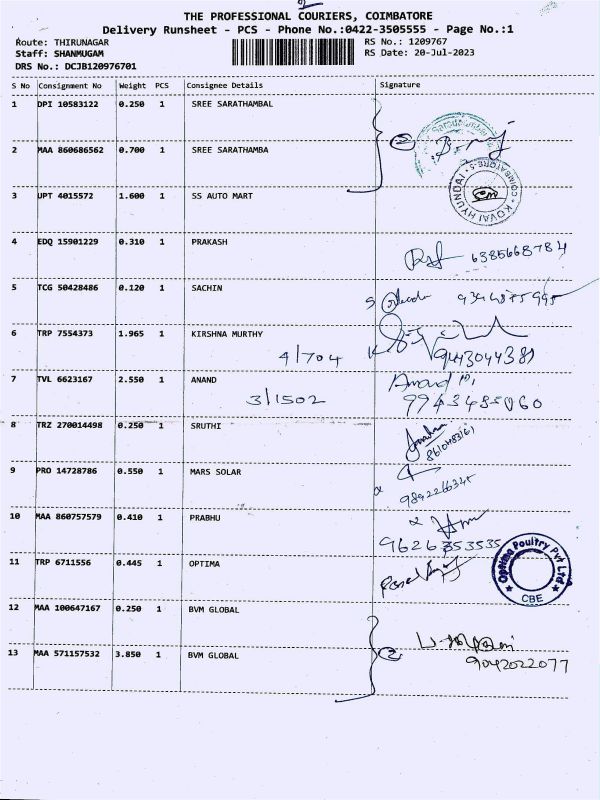 THE PROFESSIONAL COURIERS, COIMBATORE
Delivery Runsheet - PCS - Phone No.:0422-3505555 - Page No.:1
Route: THIRUNAGAR RS No.: 1209767
Staff: SHANMUGAM RS Date: 20-Jul-2023
DRS No.: DCJB120976701
S No Consignment No Weight PCS Consignee Details Signature
1 DPI 10583122 0.250 1 SREE SARATHAMBAL
2
2 MAA 860686562 0.700 1 SREE SARATHAMBA
3 UPT 4015572 1.600 1 SS AUTO MART
KOVAI HYUNDAI COIMBATORE
4 EDQ 15901229 0.310 1 PRAKASH
6385668784
5 TCG 50428486 0.120 1 SACHIN
6 TRP 7554373 1.965 1 KIRSHNA MURTHY
4/704 9443044381
7 TVL 6623167 2.550 1 ANAND Anand
3/1502 9943485060
8 TRZ 270014498 0.250 1 SRUTHI
9 PRO 14728786 0.550 1 MARS SOLAR
9892266345
10 MAA 860757579 0.410 1 PRABHU
9626353535
11 TRP 6711556 0.445 1 OPTIMA
Optima Poultry Pvt Ltd
CBE
12 MAA 100647167 0.250 1 BVM GLOBAL
13 MAA 571157532 3.850 1 BVM GLOBAL 2
9042022077